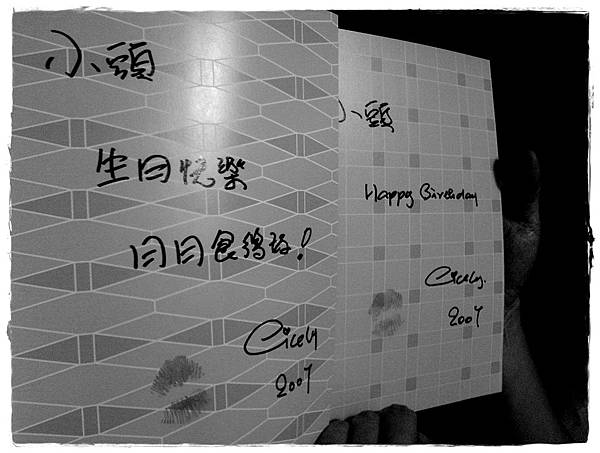 小頭
生日快樂
日日食鷄球!
Cicely
2007
小頭
Happy Birthday
Cicely.
2007